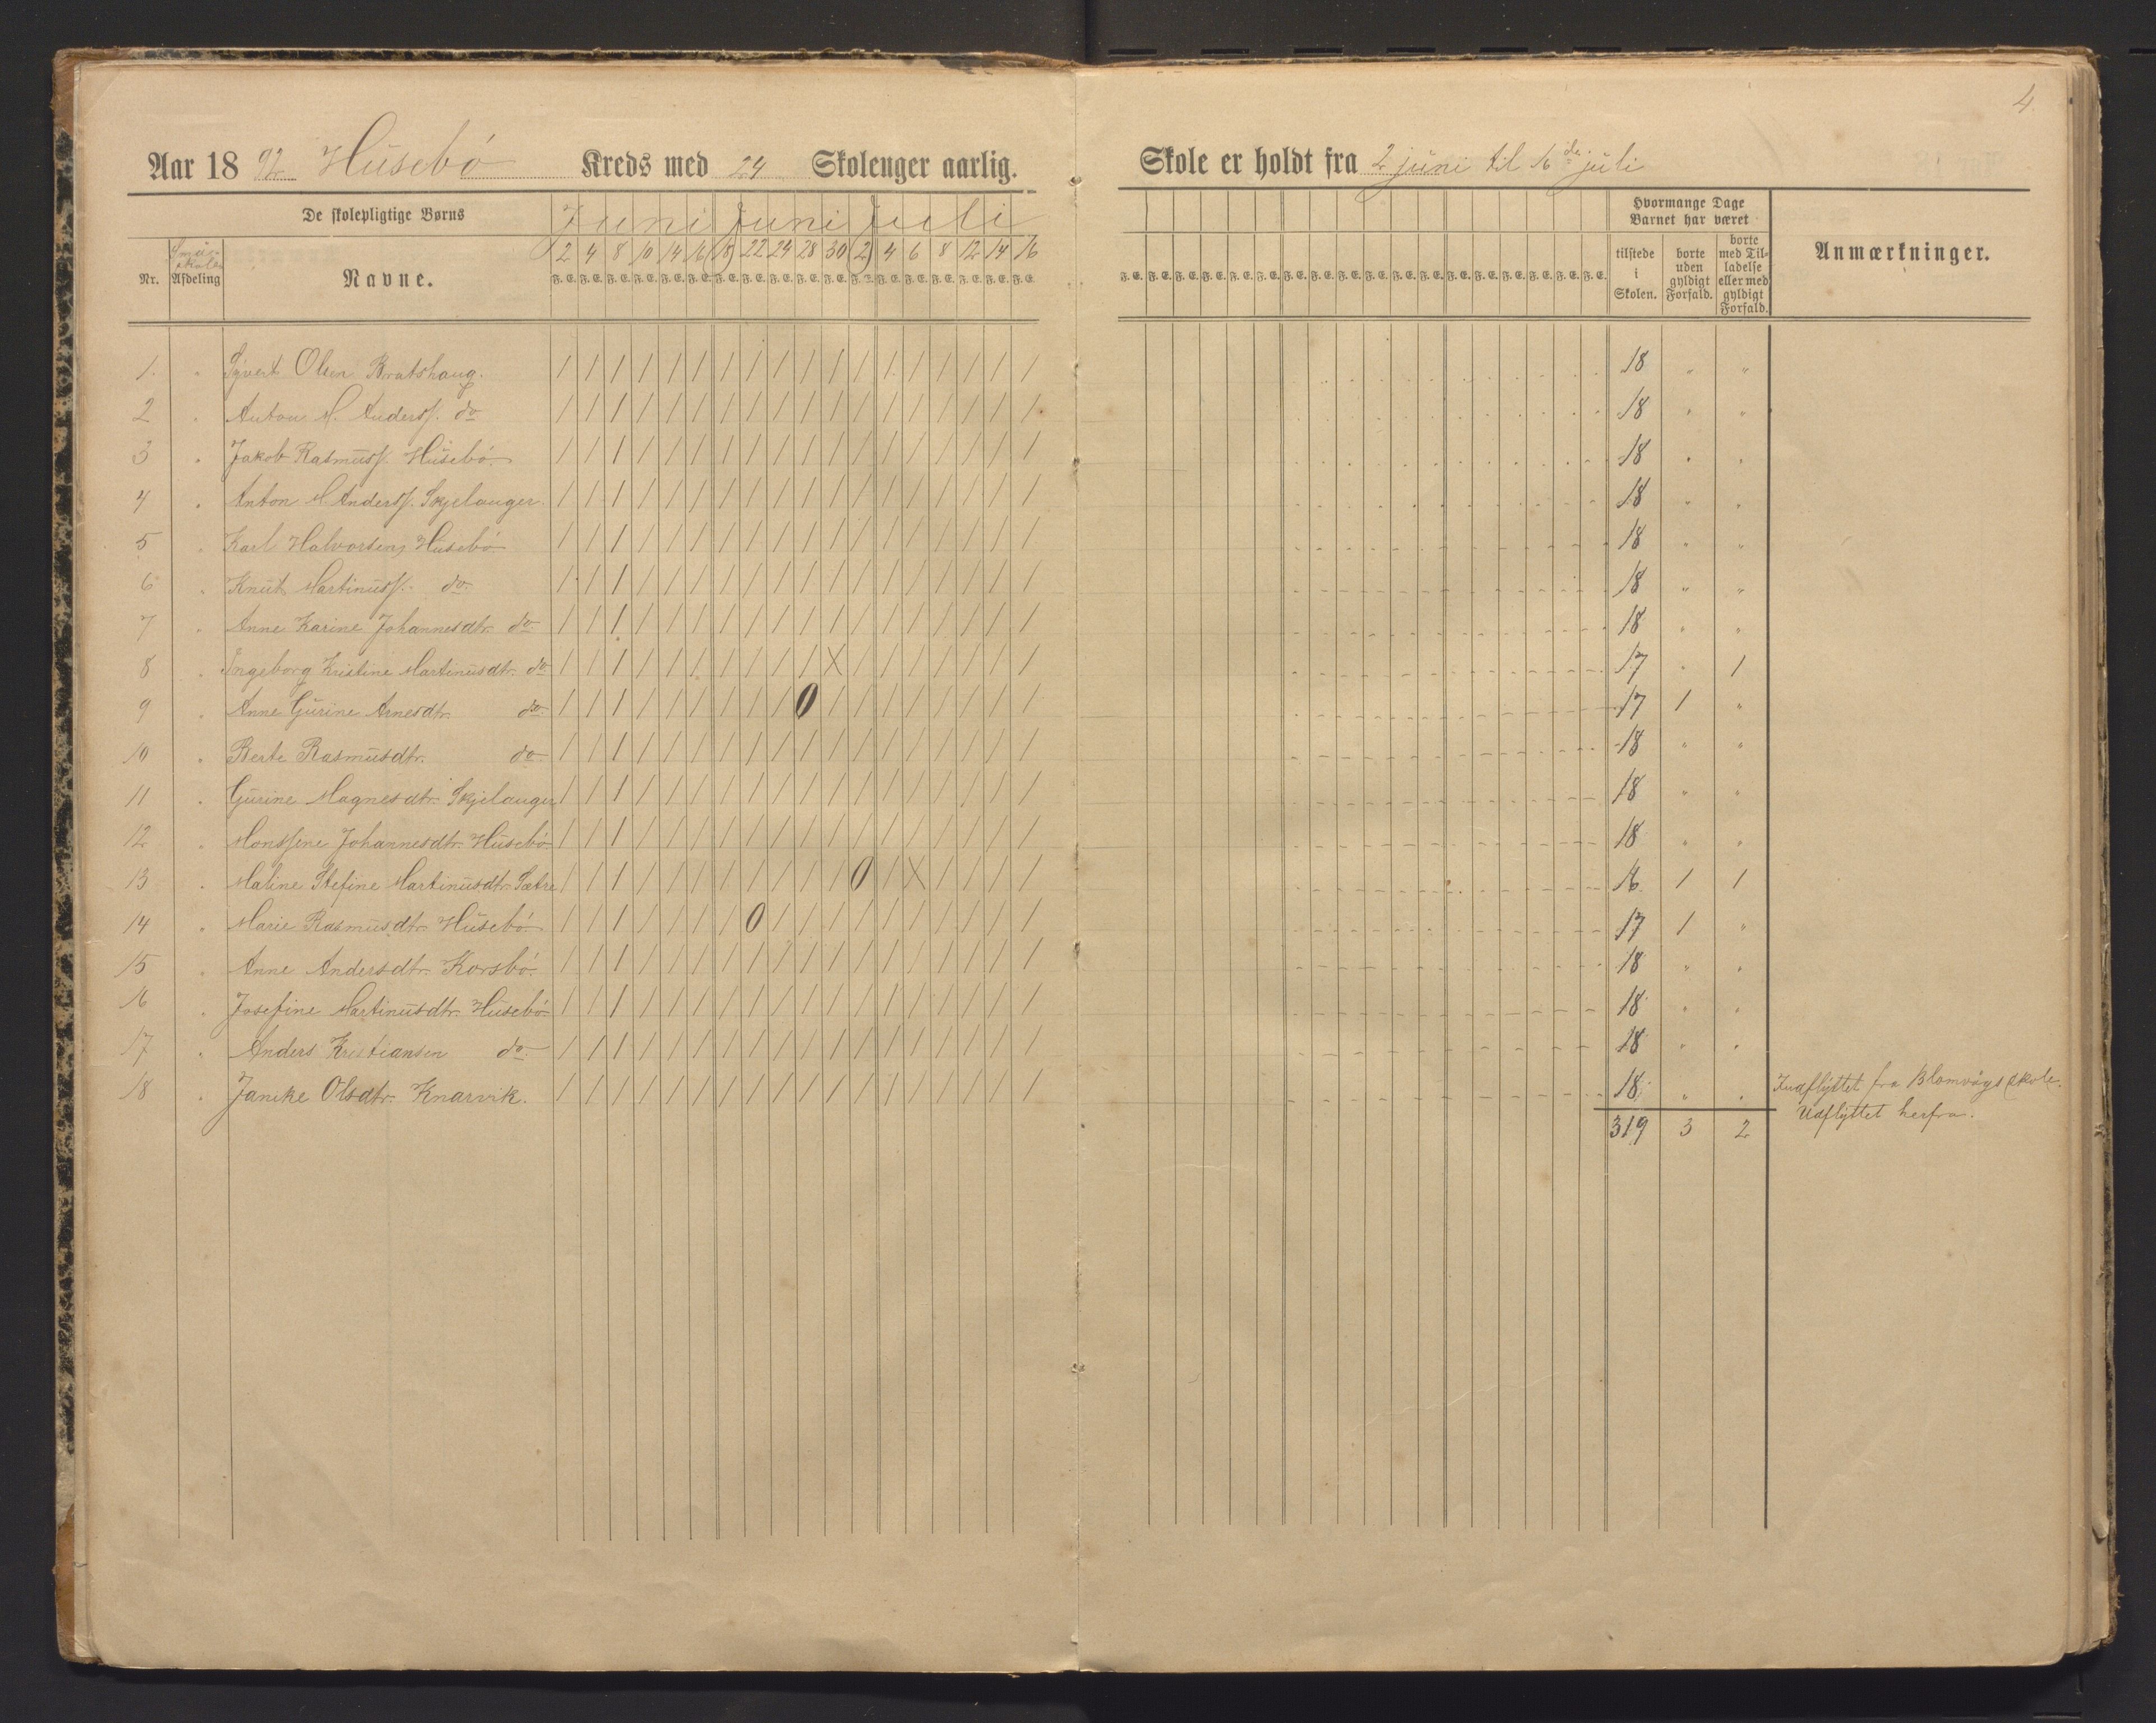 4
Aar 1892 Husebö Kreds med 24 Skolenger aarlig.
Skole er holdt fra 2 juni til 16de juli
De skolepligtige Børns
Juni Juni Juli
Hvormange Dage Barnet har været
Nr. Småskolen Afdeling Navne. 2 4 8 10 14 16 18 22 24 28 30 2 4 6 8 12 14 16
F. E. F. E. F. E. F. E. F. E. F. E. F. E. F. E. F. E. F. E. F. E. F. E. F. E. F. E. F. E. F. E. F. E. F. E.
F. E. F. E. F. E. F. E. F. E. F. E. F. E. F. E. F. E. F. E. F. E. F. E. F. E. F. E. F. E. F. E. F. E. F. E.
tilstede i Skolen. borte uden gyldigt Forfald. borte med Tilladelse eller med gyldigt Forfald. Anmærkninger.
1. " Sjvert Olsen Bratshaug. / / / / / / / / / / / / / / / / / / 18 " "
2 " Anton M. Anderss. do / / / / / / / / / / / / / / / / / / 18 " "
3 " Jakob Rasmuss. Husebö. / / / / / / / / / / / / / / / / / / 18 " "
4 " Anton M Anderss. Skjelanger. / / / / / / / / / / / / / / / / / / 18 " "
5 " Karl Halvorsen, Husebö / / / / / / / / / / / / / / / / / / 18 " "
6 " Knut Martinuss. do / / / / / / / / / / / / / / / / / / 18 " "
7 " Anne Karine Johannesdtr. do / / / / / / / / / / / / / / / / / / 18 " "
8 " Ingeborg Kristine Martinusdtr. do / / / / / / / / / / X / / / / / / / 17 " 1
9 " Anne Gurine Arnesdtr. do / / / / / / / / / 0 / / / / / / / / 17 1 "
10 " Berte Rasmusdtr. do / / / / / / / / / / / / / / / / / / 18 " "
11 " Gurine Magnesdtr. Skjelanger / / / / / / / / / / / / / / / / / / 18 " "
12 " Monssine Johannesdtr. Husebö / / / / / / / / / / / / / / / / / / 18 " "
13 " Maline Stefine Martinusdtr. Sætre / / / / / / / / / / / 0 / X / / / / 16 1 1
14 " Marie Rasmusdtr. Husebö. / / / / / / / 0 / / / / / / / / / / 17 1 "
15 " Anne Andersdtr. Korsbö. / / / / / / / / / / / / / / / / / / 18 " "
16 " Josefine Martinusdtr. Husebö / / / / / / / / / / / / / / / / / / 18 " "
17 " Anders Kristiansen do / / / / / / / / / / / / / / / / / / 18 " "
18 " Janike Olsdtr. Knarvik. / / / / / / / / / / / / / / / / / / 18 " " Indflyttet fra Blomvågs skole.
Udflyttet herfra.
319 3 2